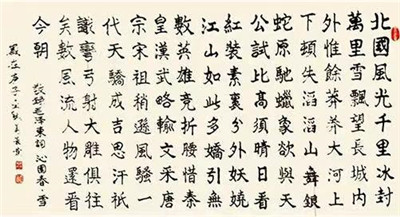 北國風光千里冰封
萬里雪飄望長城內
外惟餘莽莽大河上
下頓失滔滔山舞銀
蛇原馳蠟象欲與天
公試比高須晴日看
紅裝素裹分外妖嬈
江山如此多嬌引無
數英雄競折腰惜秦
皇漢武略輸文采唐
宗宋祖稍遜風騷一
代天驕成吉思汗祇
識彎弓射大雕俱往
矣數風流人物還看
今朝
敬錄毛澤東詞沁園春雪
歲在